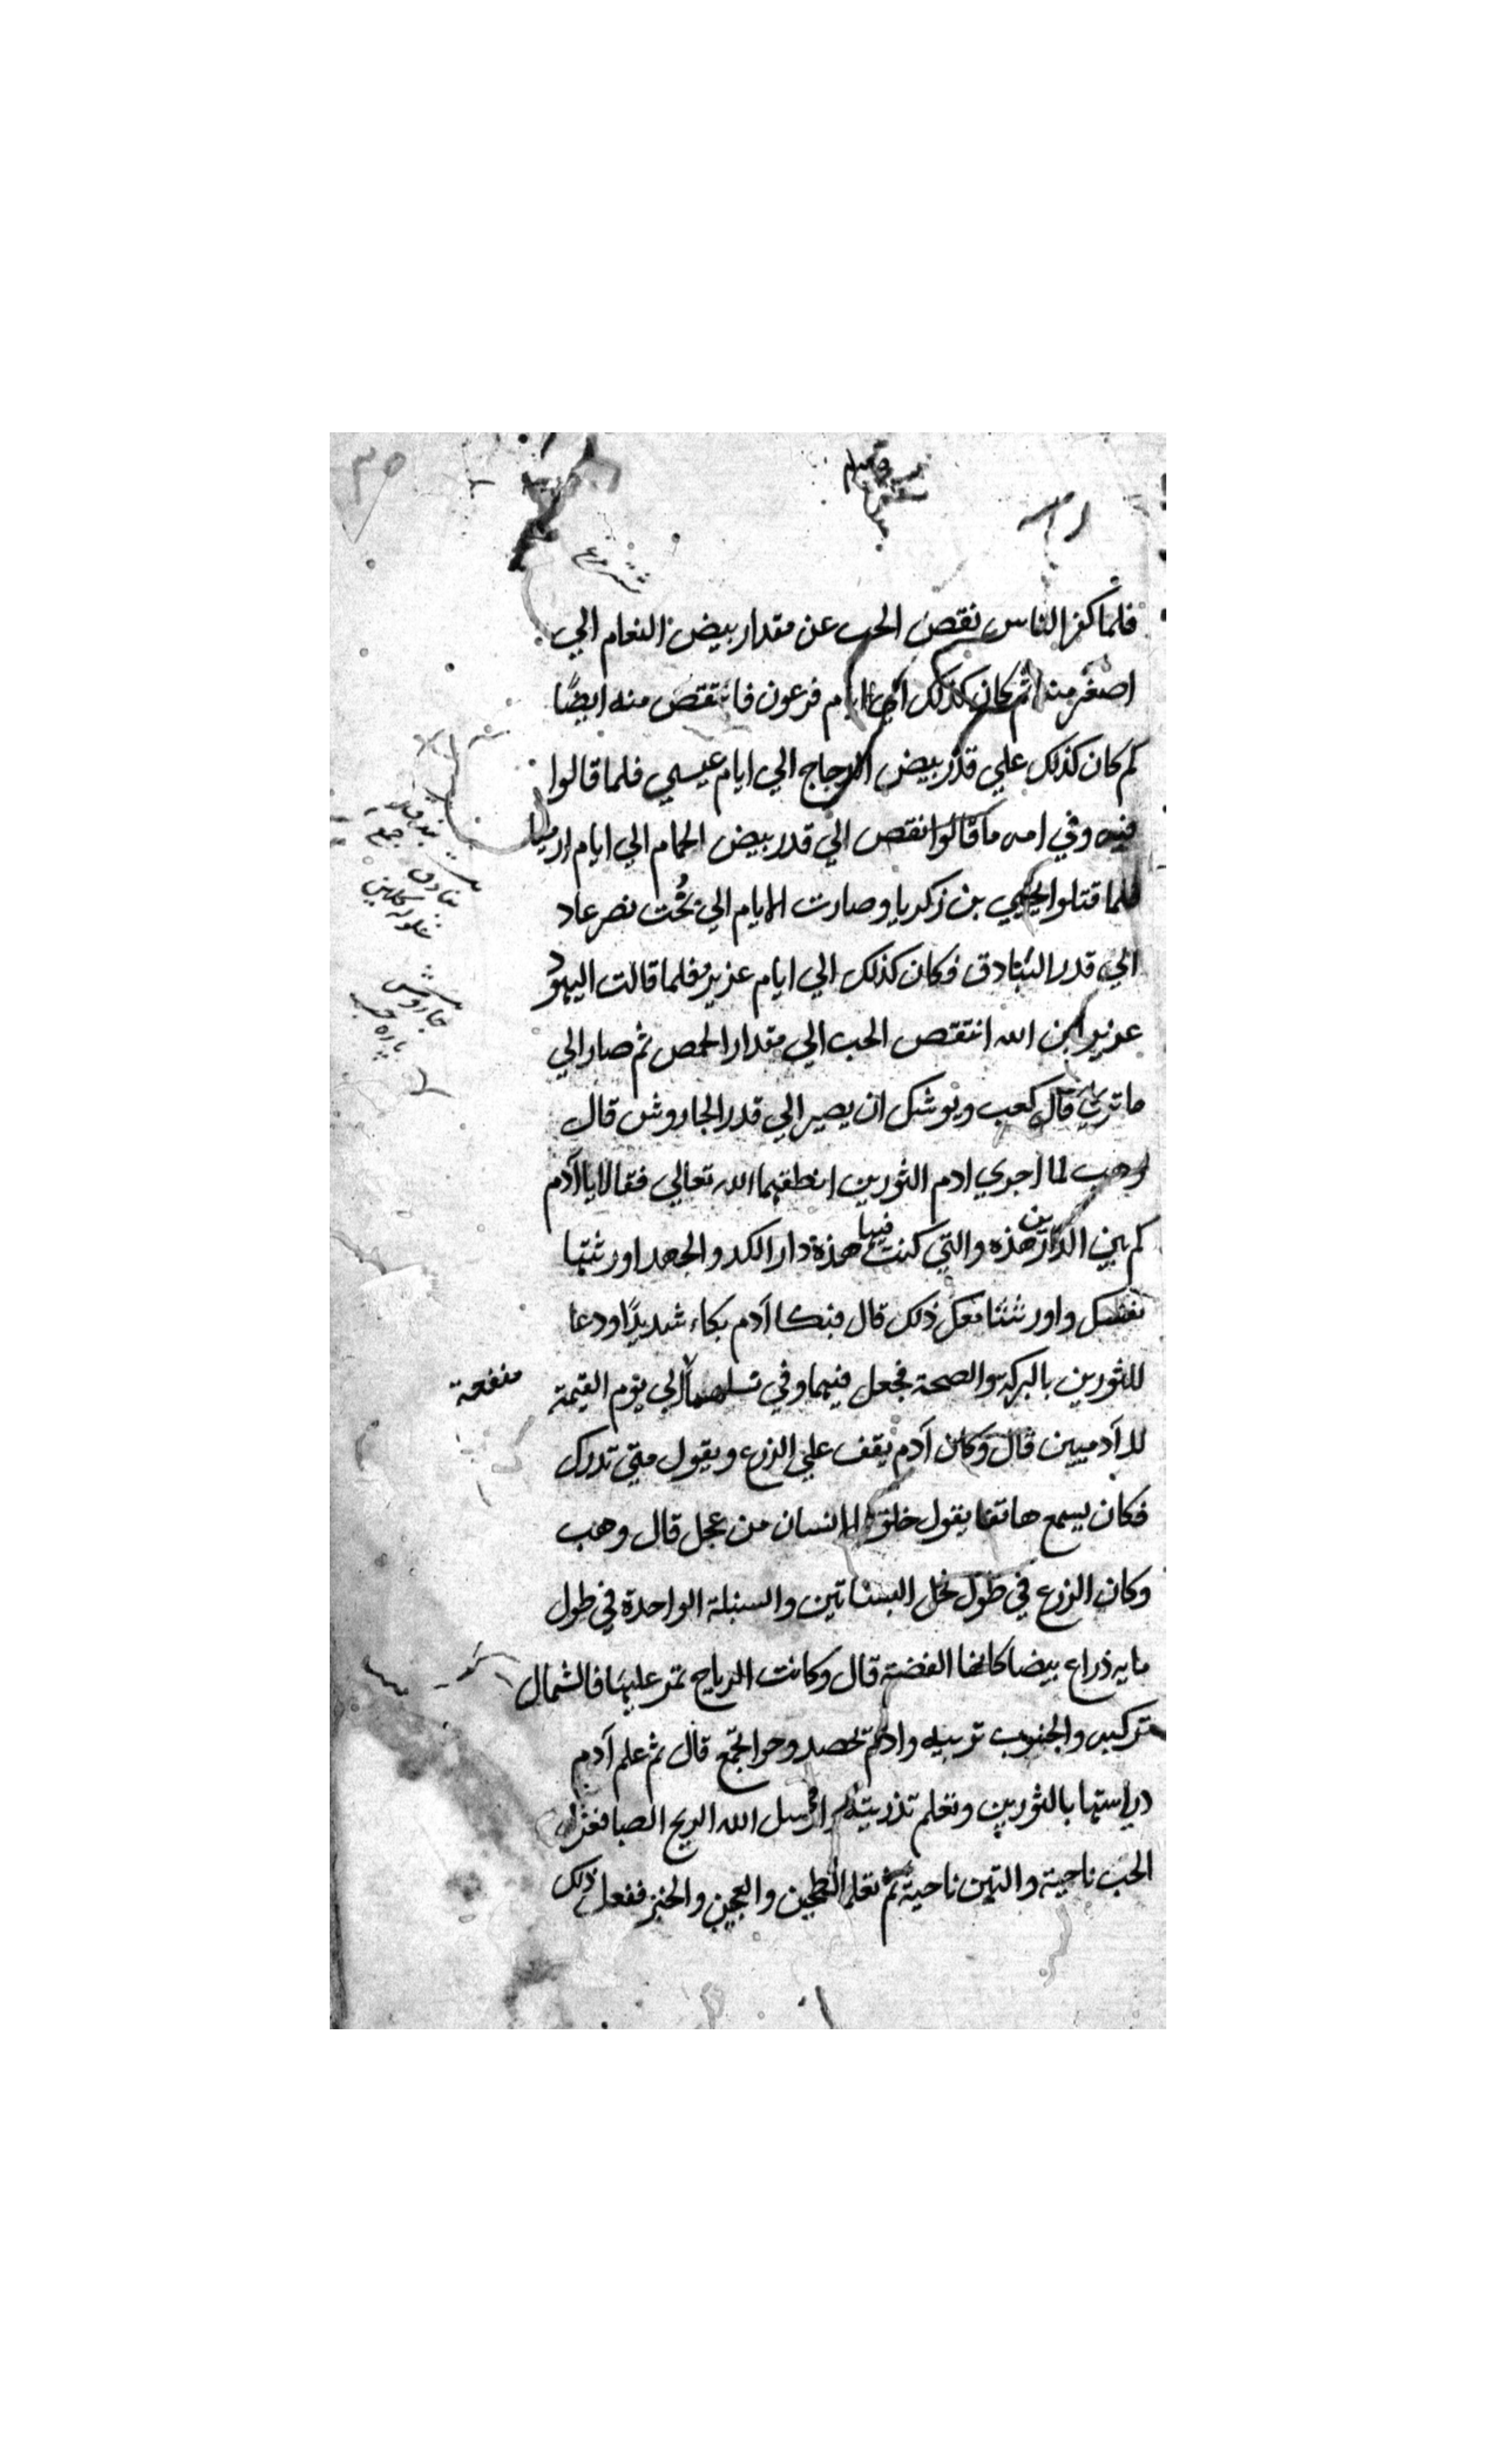 فلما كفر الناس نقص الحب عن مقدار بيض النعام الي
اصغر منه ثم كان كذلك الي ايام فرعون فانتقص منه ايضًا
ثم كان كذلك علي قدر بيض الدجاج الي ايام عيسي فلما قالوا
فيه وفي امه ما قالوا نقص الي قدر بيض الحمام الي ايام
فلما قتلوا يحيي بن زكريا وصارت الايام الي بُخت نصر عاد
الي قدر البنادق فكان كذلك الي ايام عزير فلما قالت اليهود
عزير ابن الله انتقص الحب الي مقدار الحمص ثم صار الي
ما تري قال كعب ويوشك ان يصير الي قدر الجاروش قال
وهب لما اجري ادم الثورين انطقهما الله تعالي فقالا يا آدم
كم بين الدارين هذه والتي كنت فيها هذه دار الكد والجهد اورثتها
نفسك واورثتنا معك ذلك قال فبكا آدم بكاء شديدًا ودعا
للثورين بالبركة والصحة فجعل فيهما وفي نسلهما الي يوم القيمة
منفعة
للآدميين قال وكان آدم يقف علي الزرع ويقول متي تدرك
فكان يسمع هاتفا يقول خلق الانسان من عجل قال وهب
وكان الزرع في طول نخل البساتين والسنبلة الواحدة في طول
مايه ذراع بيضا كانها الفضة قال وكانت الرياح تمر عليها فالشمال
تركيه والجنوب تربيه وادم تحصد وحوا تجمع قال ثم علم آدم
دراستها بالثورين وتعلم تذريته ارسل الله الريح الصبا فعزل
الحب ناحية والتبن ناحية ثم تعلم الطحين والعجين والخبز ففعل ذلك